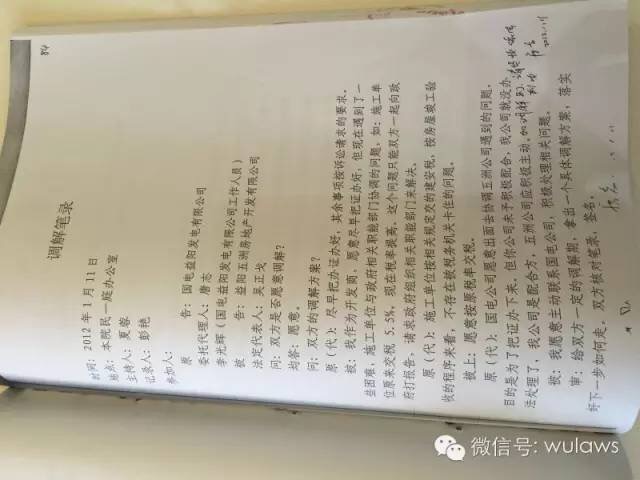 84
调解笔录
时间：2012 年 1 月 11 日
地点：本院民一庭办公室
主持人：夏蓉
记录人：彭艳
参加人：
原 告：国电益阳发电有限公司
委托代理人：唐志
李光辉（国电益阳发电有限公司工作人员）
被 告：益阳五洲房地产开发有限公司
法定代表人：吴正戈
问：双方是否愿意调解？
均答：愿意。
问：双方的调解方案？
原（代）：尽早把办证办好，其余事项按诉讼请求的要求。
被：我作为开发商，愿意尽早把证办好，但现在遇到了一
些困难，施工单位与政府相关职能部门协调的问题。如：施工单
位原来交税 5.5%，现在税率提高，这个问题只能双方一起向政
府打报告，请求政府组织相关职能部门来解决。
原（代）：施工单位按相关规定交的建安税，按房屋竣工验
收的程序来看，不存在被税务机关卡住的问题。
被上：愿意按原税率交税。
原（代）：国电公司愿意出面去协调五洲公司遇到的问题，
目的是为了把证办下来，但你公司未积极配合，我公司就没办
法处理了，我公司是配合方，五洲公司应积极主动。
被：我愿意主动联系国电公司，积极处理相关问题。
审：给双方一定的调解期，拿出一个具体调解方案，落实
好下一步如何走。双方核对笔录，签名。
微信号: wulaws